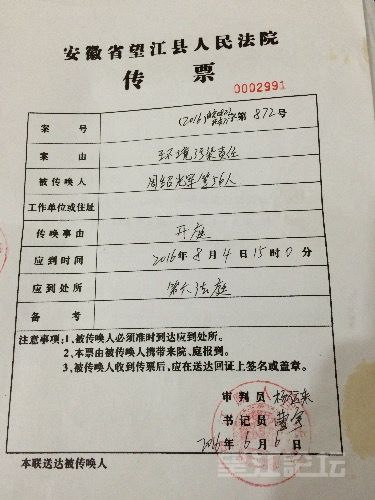 安徽省望江县人民法院
传 票
0002991
案 号 (2016)皖0827民初字第872号
案 由 环境污染责任
被传唤人 周绍光军等56人
工作单位或住址
传唤事由 开庭
应到时间 2016年8月4日15时0分
应到处所 第六法庭
备 考
注意事项:1、被传唤人必须准时到达应到处所。
2、本票由被传唤人携带来院、庭报到。
3、被传唤人收到传票后,应在送达回证上签名或盖章。
审 判 员 杨运来
书 记 员
2016年6月6日
本联送达被传唤人
望江论坛